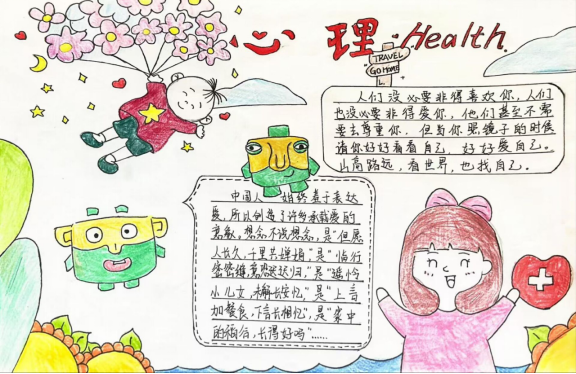 心理·Health.
TRAVEL
GO HOME
人们没必要非得喜欢你,人们
也没必要非得爱你,他们甚至不需
要去尊重你,但当你照镜子的时候
请你好好看看自己,好好爱自己。
山高路远,看世界,也找自己。
中国人 始终羞于表达
爱,所以创造了许多承载爱的
意象。想念不说想念,是“但愿
人长久,千里共婵娟”是“临行
密密缝,意恐迟迟归”是“遥怜
小儿女,未解忆长安”,是“上言
加餐食,下言长相忆”,是“家中
的 ,长得好吗”……